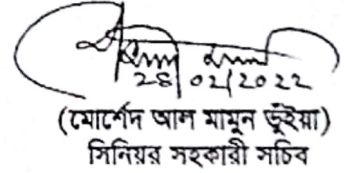 28/02/2022
(মোর্শেদ আল মামুন ভুঁইয়া)
সিনিয়র সহকারী সচিব